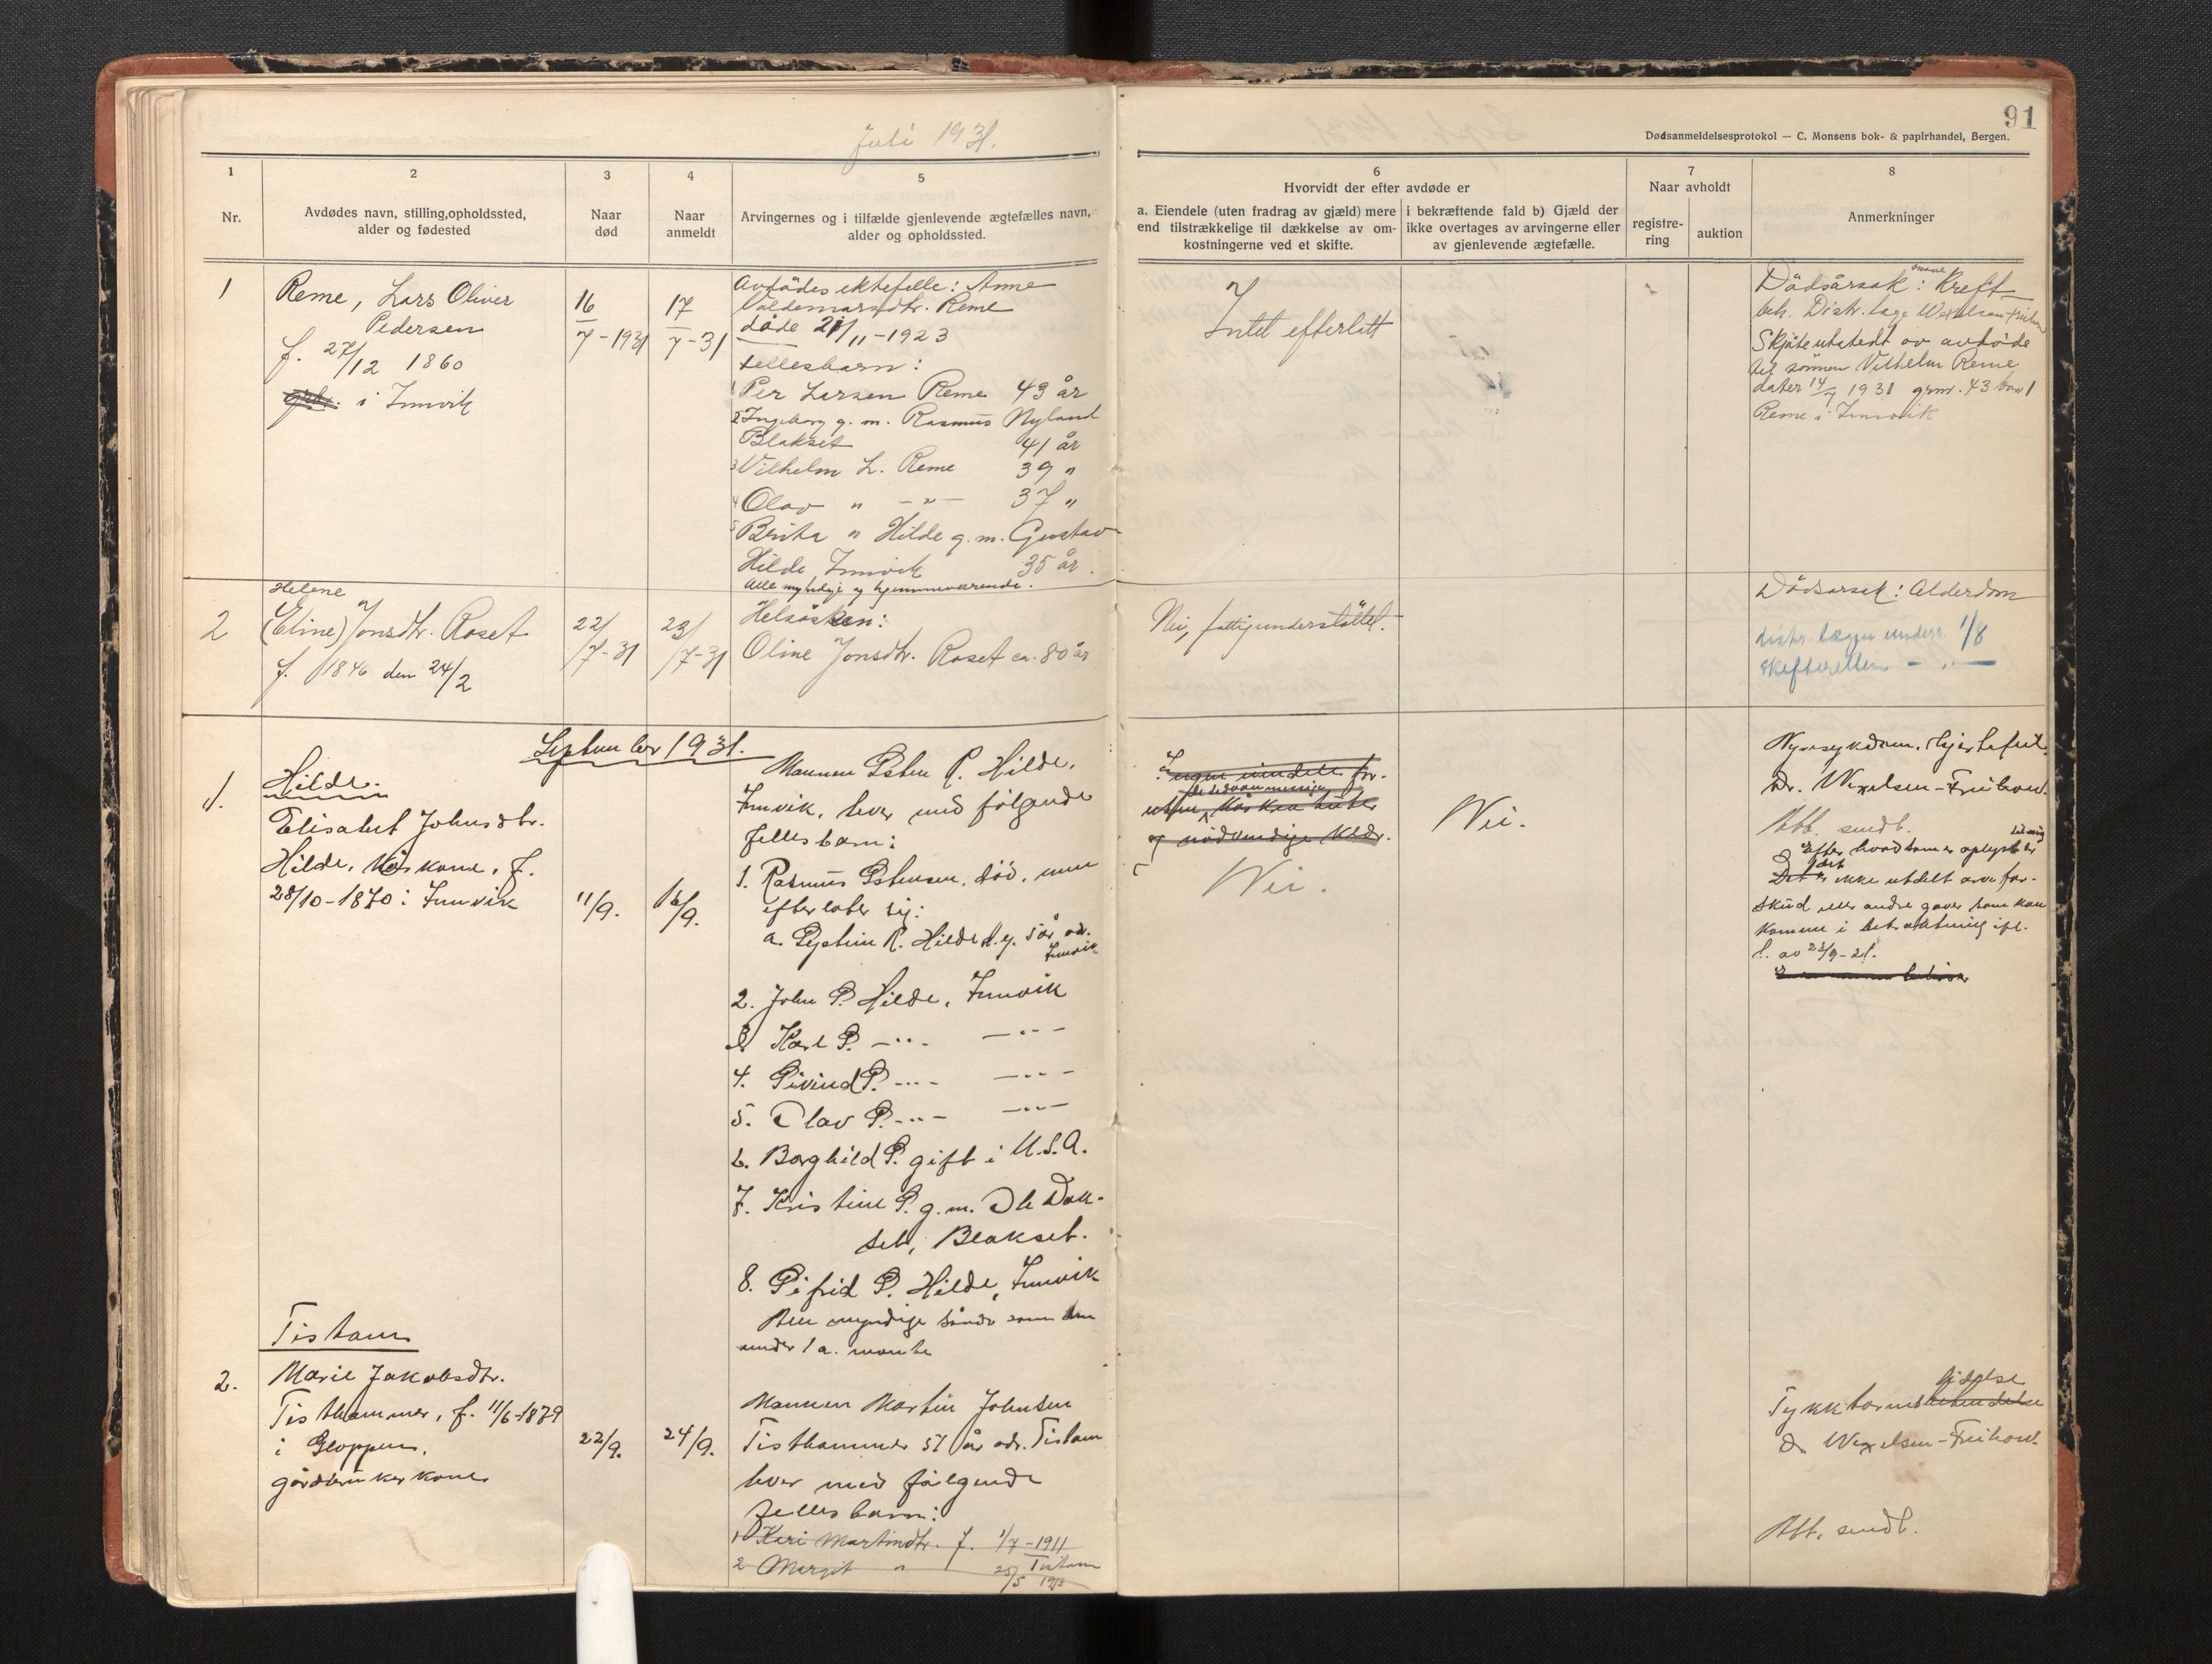 Juli 1931.
91
Dødsanmeldelsesprotokol — C. Monsens bok- & papirhandel, Bergen.
1
Nr.
2
Avdødes navn, stilling,opholdssted,
alder og fødested
3
Naar
død
4
Naar
anmeldt
5
Arvingernes og i tilfælde gjenlevende ægtefælles navn,
alder og opholdssted.
6
Hvorvidt der efter avdøde er
a. Eiendele (uten fradrag av gjæld) mere
end tilstrækkelige til dækkelse av om-
kostningerne ved et skifte.
i bekræftende fald b) Gjæld der
ikke overtages av arvingerne eller
av gjenlevende ægtefælle.
7
Naar avholdt
registre-
ring
auktion
8
Anmerkninger
1
Reme, Lars Oliver
Pedersen
f. 27/12 1860
i Innvik
16
7-1931
17
7-31
Avdødes ektefelle: Anne
Valdemarsdtr. Reme
døde 21/11-1923
Fellesbarn:
1 Per Larsen Reme 43 år
2 Ingeborg g. m. Rasmus Nyland
Blakset 41 år
3 Vilhelm L. Reme 39 "
4 Olav " — " — 37 "
5 Brita " Hilde g. m. Gustav
Hilde Innvik 35 år.
Alle myndige og hjemmeværende.
Intet efterlatt
Dødsårsak: Kreft
beh. Distr. læge Wexelsen-Freihow
Skjøte utstedt av avdøde
til sønnen Vilhelm Reme
dater 14/7 1931 grnr. 43 brnr 1
Reme i Innvik
2
Helene
(Eline) Jonsdtr. Roset
f. 1846 den 24/2
22/
/7-31
23/
/7-31
Helsøsken:
Oline Jonsdtr. Roset ca. 80 år
Nei, fattigunderstøttet.
Dødsårsak: Alderdom
distr. lægen underr. 1/8
skifteretten — " —
September 1931.
1.
Hilde.
Elisabet Johnsdtr.
Hilde, kårkone, f.
28/10-1870 i Innvik
11/9.
16/9.
Mannen Peter R. Hilde,
Innvik, lever med følgende
fellesbarn:
1. Rasmus Petersen, død, men
efterlater sig:
a. Øystein R. Hilde d.y. 5 år adr.
Innvik
2. John P. Hilde, Innvik
3 Karl P. —"— —"—
4. Eivind P. —"— —"—
5. Olav P. —"— —"—
6. Borghild P. gift i U.S.A.
7. Kristine P. g. m. Ole Dok-
set, Blakset.
8. Eifrid P. Hilde, Innvik
Alle myndige både som den
under 1 a. nevnte
Ingen eiendele for-
uten
og nødvendige klær.
Nei.
Nei.
Nyresykdom, Hjertefeil.
Dr. Wexelsen-Freihow.
Att. sendt.
Efter hvad som er oplyst
til mig
er det ikke utdelt arvefor-
skud eller andre gaver som kan
komme i betraktning ifl.
l. av 23/9-21.
2.
Tistam
Marie Jakobsdtr.
Tisthammer, f. 11/6-1879
i Gloppen.
gårdbrukerkone
22/9.
24/9.
Mannen Martin Johnsen
Tisthammer 57 år adr. Tistam
lever med følgende
fellesbarn:
1 Kari Martinsdtr. f. 1/7-1911
Tistam
2 Margit " 25/5 1913
lidelse
Tykktarms
Dr. Wexelsen-Freihow.
Att. sendt.